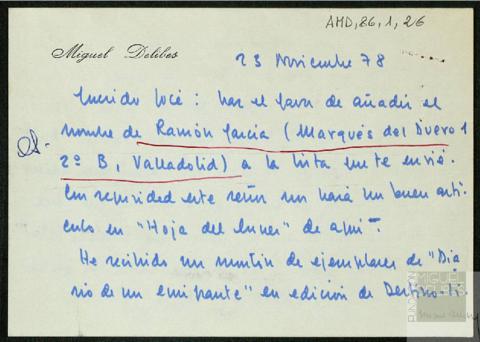 AMD,86,1,26
Miguel Delibes
23 Noviembre 78
Querido José: haz el favor de añadir el
nombre de Ramón García (Marqués del Duero 1
2º B, Valladolid) a la lista que te envié.
Con seguridad este señor nos hará un buen artí-
culo en "Hoja del Lunes" de aquí.
He recibido un montón de ejemplares de "Dia
rio de un emigrante" en edición de Destino-li
FUNDACIÓN
MIGUEL
DELIBES